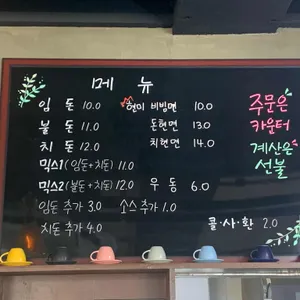 메뉴
임돈 10.0
불돈 11.0
치돈 12.0
믹스1 (임돈+치돈) 11.0
믹스2 (불돈+치돈) 12.0
임돈 추가 3.0 소스추가 1.0
치돈 추가 4.0
현미 비빔면 10.0
돈현면 13.0
치현면 14.0
우동 6.0
콜·사·환 2.0
주문은
카운터
계산은
선불